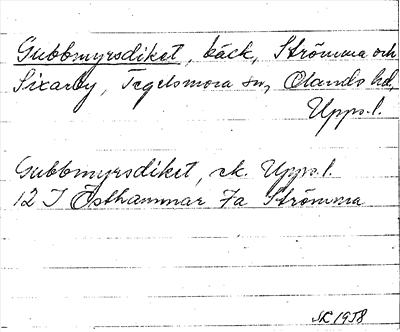 Gubbmyrsdiket, bäck, Strömma och
Sixarby, Tegelsmora sn, Olands hd,
Upps.l.
Gubbmyrsdiket, ek. Upps.l.
12 I Östhammar 7a Strömma
NC 1958